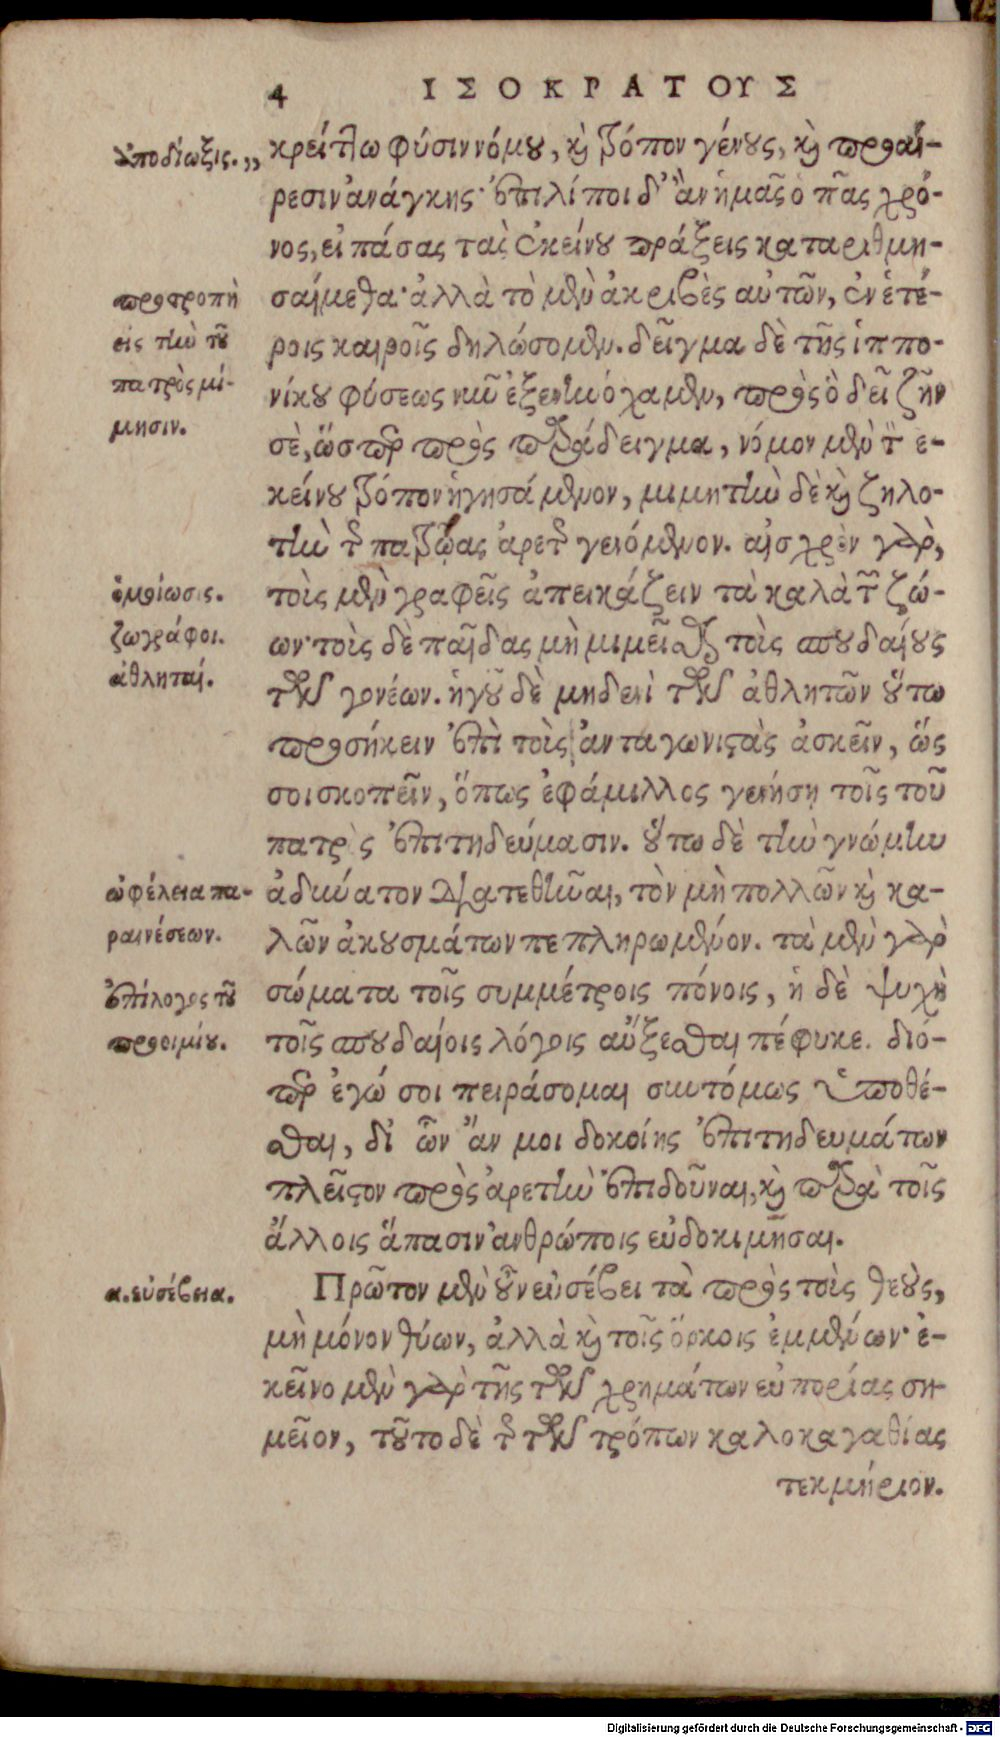 4 ΙΣΟΚΡΑΤΟΥΣ
ὑποδίωξις. „ κρείττω φύσιν νόμου, καὶ τρόπον γένους, καὶ προαί-
ρεσιν ἀνάγκης· ἐπιλίποι δ' ἂν ἡμᾶς ὁ πᾶς χρό-
νος, εἰ πάσας τὰς ἐκείνου πράξεις καταριθμη-
προτροπὴ σαίμεθα· ἀλλὰ τὸ μὲν ἀκριβὲς αὐτῶν, ἐν ἑτέ-
εἰς τὴν τοῦ ροις καιροῖς δηλώσομεν. δεῖγμα δὲ τῆς ἱππο-
πατρὸς μί- νίκου φύσεως νῦν ἐξενηνόχαμεν, πρὸς ὃ δεῖ ζῆν
μησιν. σὲ, ὥσπερ πρὸς παράδειγμα, νόμον μὲν τὸν ἐ-
κείνου τρόπον ἡγησάμενον, μιμητὴν δὲ καὶ ζηλο-
τὴν τῆς πατρῴας ἀρετῆς γενόμενον. αἰσχρὸν γὰρ,
ὁμοίωσις. τοὺς μὲν γραφεῖς ἀπεικάζειν τὰ καλὰ τῶν ζώ-
ζωγράφοι. ων· τοὺς δὲ παῖδας μὴ μιμεῖσθαι τοὺς σπουδαίους
ἀθληταί. τῶν γονέων. ἡγοῦ δὲ μηδενὶ τῶν ἀθλητῶν οὕτω
προσήκειν ἐπὶ τοὺς ἀνταγωνιστὰς ἀσκεῖν, ὥς
σοι σκοπεῖν, ὅπως ἐφάμιλλος γενήσῃ τοῖς τοῦ
πατρὸς ἐπιτηδεύμασιν. οὕτω δὲ τὴν γνώμην
ὠφέλεια πα- ἀδύνατον διατεθῆναι, τὸν μὴ πολλῶν καὶ κα-
ραινέσεων. λῶν ἀκουσμάτων πεπληρωμένον. τὰ μὲν γὰρ
ἐπίλογος τοῦ σώματα τοῖς συμμέτροις πόνοις, ἡ δὲ ψυχὴ
προοιμίου. τοῖς σπουδαίοις λόγοις αὔξεσθαι πέφυκε. διό-
περ ἐγώ σοι πειράσομαι συντόμως ὑποθέ-
σθαι, δι' ὧν ἄν μοι δοκοίης ἐπιτηδευμάτων
πλεῖστον πρὸς ἀρετὴν ἐπιδοῦναι, καὶ παρὰ τοῖς
ἄλλοις ἅπασιν ἀνθρώποις εὐδοκιμῆσαι.
α. εὐσέβεια. Πρῶτον μὲν οὖν εὐσέβει τὰ πρὸς τοὺς θεοὺς,
μὴ μόνον θύων, ἀλλὰ καὶ τοῖς ὅρκοις ἐμμένων· ἐ-
κεῖνο μὲν γὰρ τῆς τῶν χρημάτων εὐπορίας ση-
μεῖον, τοῦτο δὲ τῆς τῶν τρόπων καλοκαγαθίας
τεκμήριον.
Digitalisierung gefördert durch die Deutsche Forschungsgemeinschaft - DFG